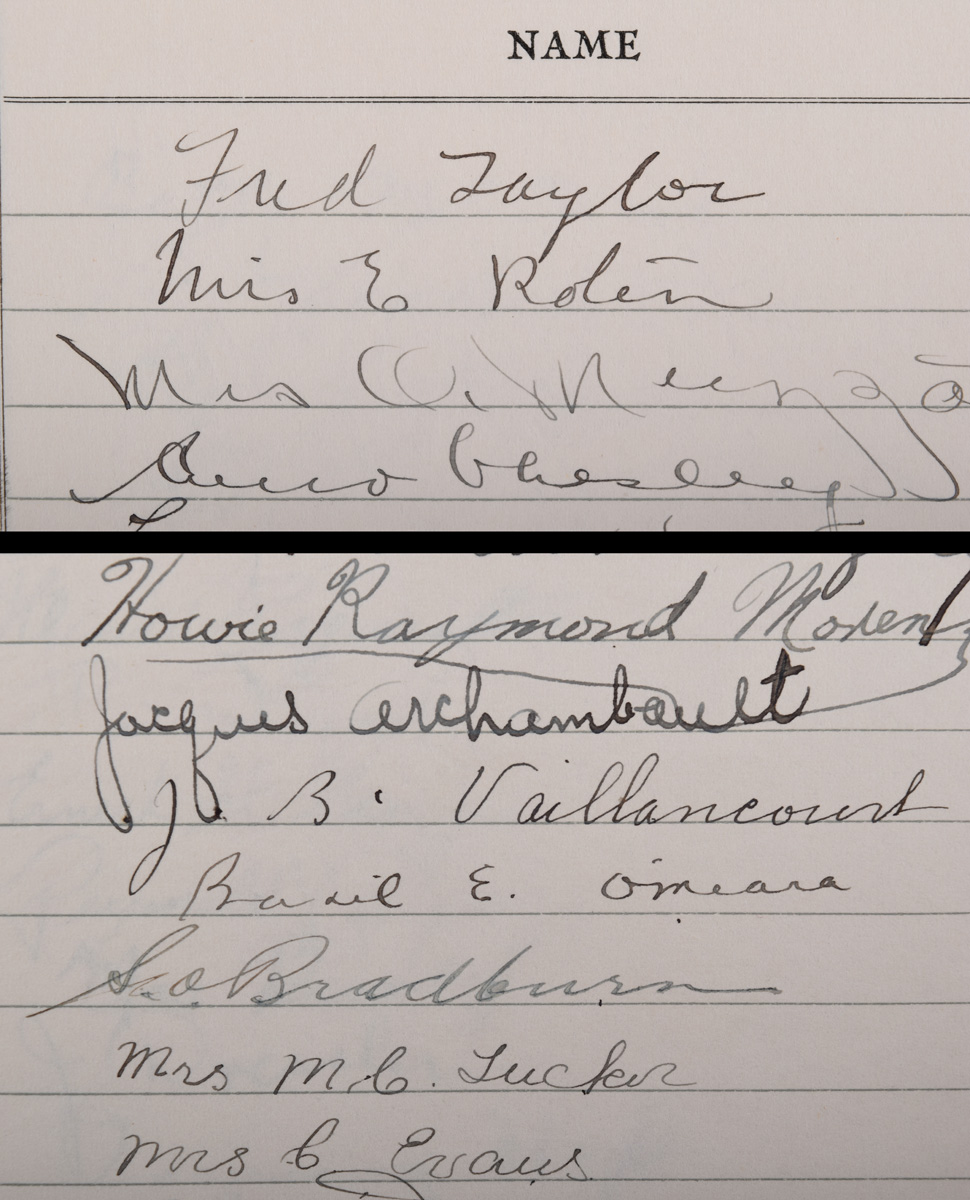 NAME
Fred Taylor
Mrs E
Mrs O.
Chesley
Howie Raymond Morenz
Jacques Archambault
J. B. Vaillancourt
Basil E. Omeara
Geo. Bradburn
Mrs M. C. Tucker
Mrs C Evans